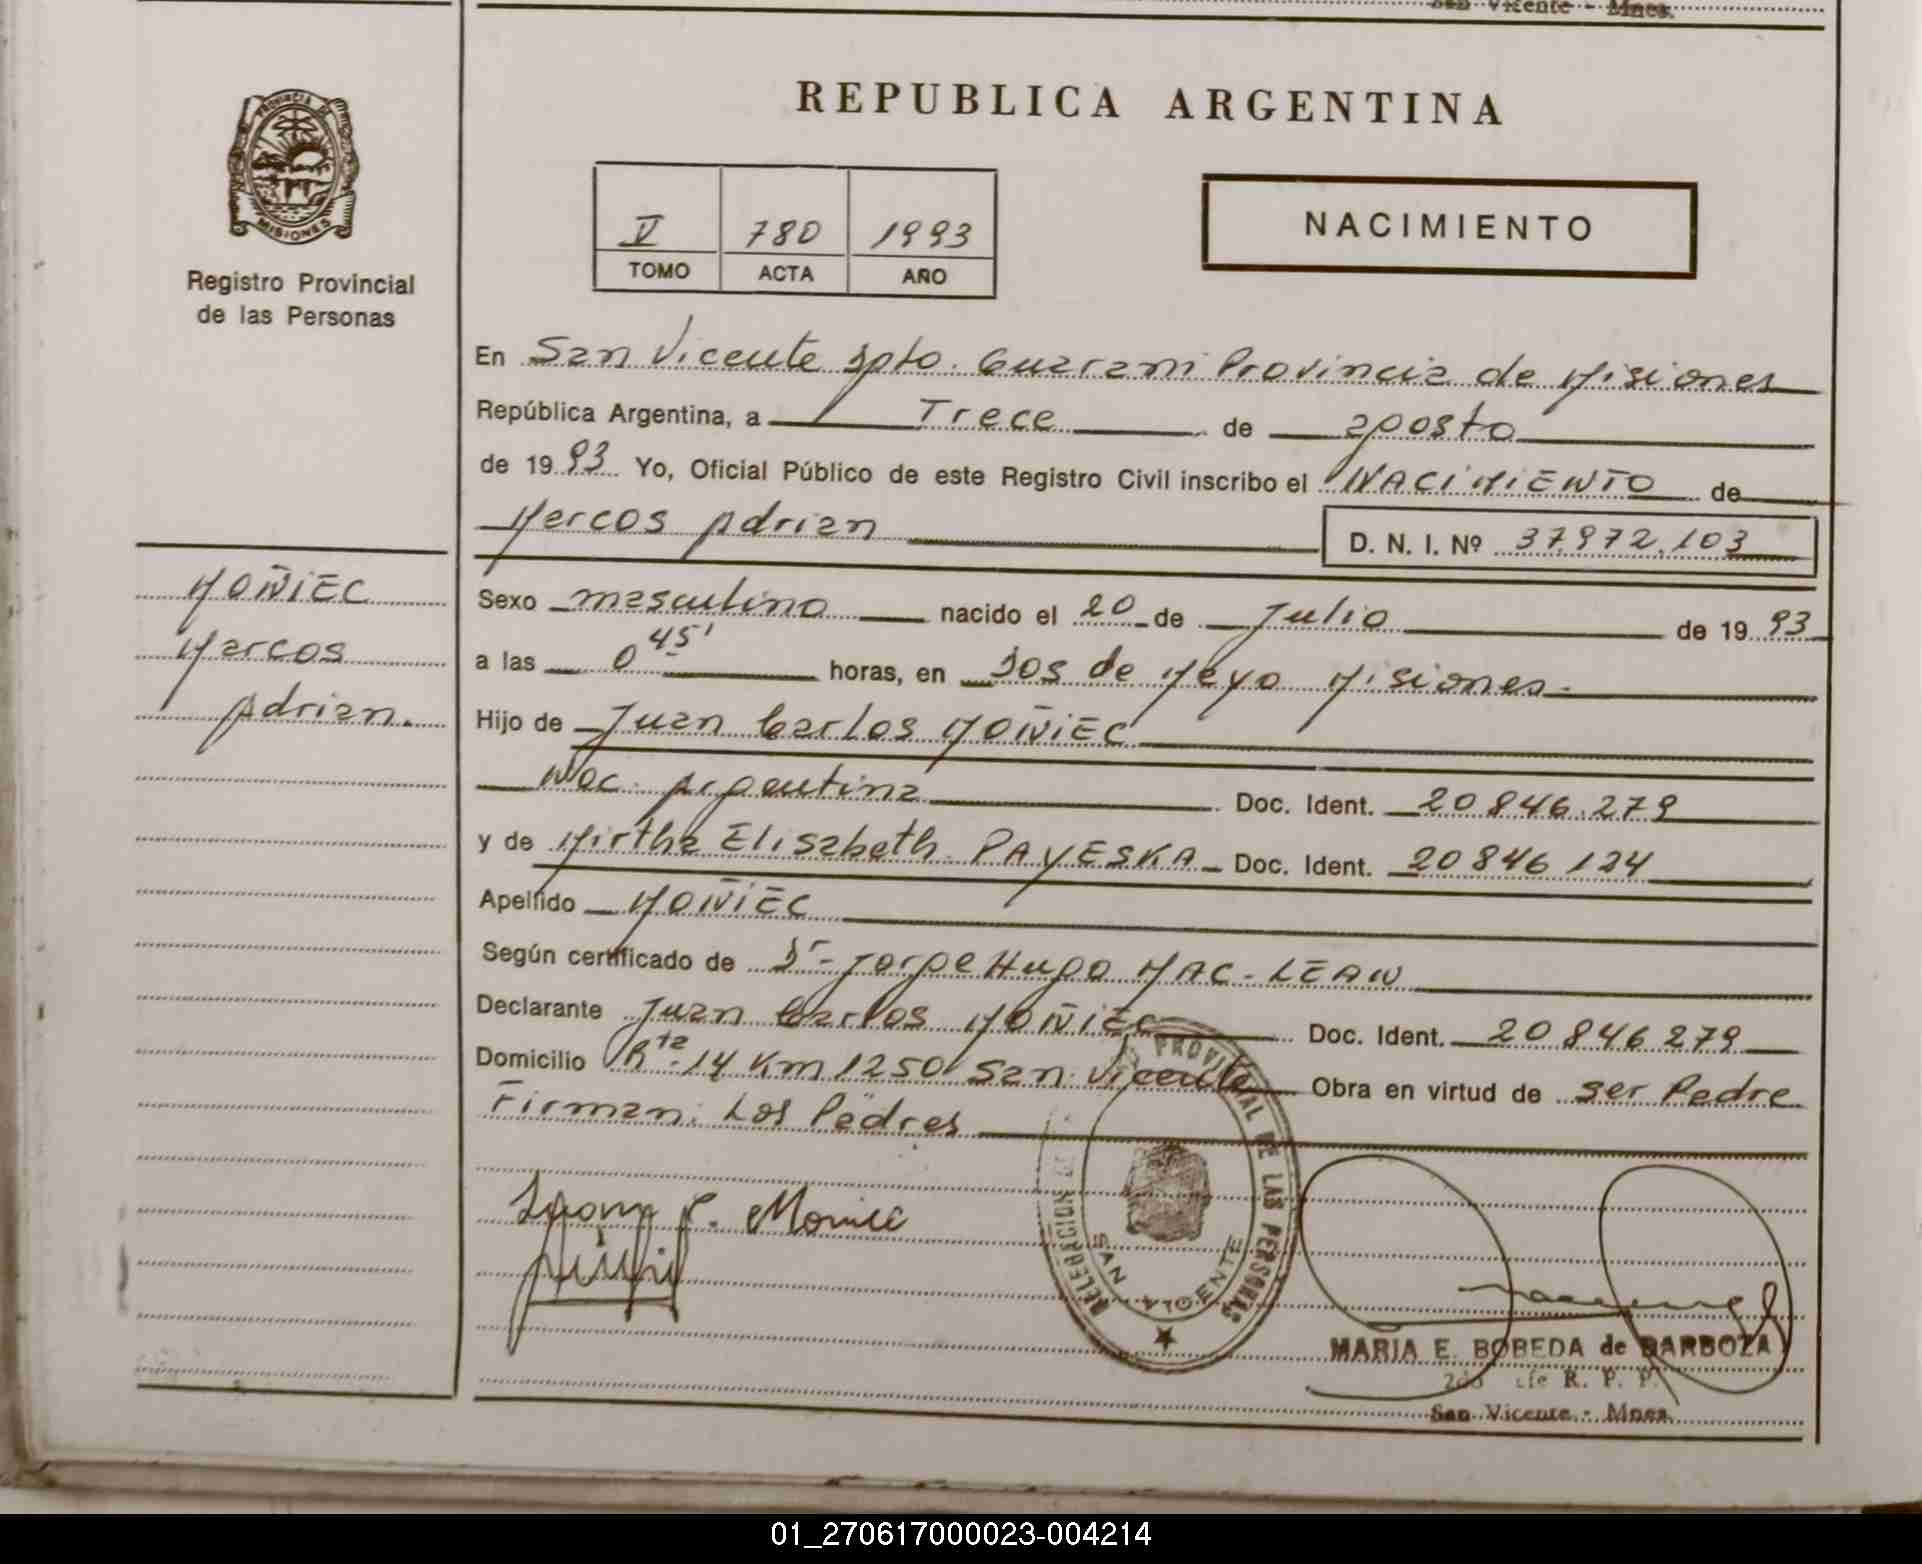 San Vicente - Mnes.
REPUBLICA ARGENTINA
PROVINCIA DE
MISIONES
Registro Provincial
de las Personas
V 780 1993
TOMO ACTA AÑO
NACIMIENTO
En San Vicente Dpto. Guarani Provincia de Misiones
República Argentina, a Trece de agosto
de 1993 Yo, Oficial Público de este Registro Civil inscribo el NACIMIENTO de
Marcos Adrian D. N. I. Nº 37.972.103
MOÑIEC
Marcos
Adrian.
Sexo masculino nacido el 20 de Julio de 1993
a las 0 45' horas, en Dos de Mayo Misiones.-
Hijo de Juan Carlos MOÑIEC
Nac. Argentina Doc. Ident. 20846.279
y de Mirtha Elisabeth PAYESKA Doc. Ident. 20846 124
Apellido MOÑIEC
Según certificado de Dr- Jorge Hugo MAC-LEAN
Declarante Juan Carlos MOÑIEC Doc. Ident. 20846279
Domicilio Rta. 14 Km 1250 San Vicente Obra en virtud de ser Padre
Firman: Los Padres
DELEGACION PROVINCIAL DE LAS PERSONAS
SAN VICENTE
MARIA E. BOBEDA de BARBOZA
R. P. P.
San Vicente - Mnes.
01_270617000023-004214